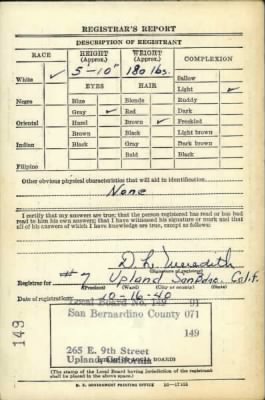 REGISTRAR'S REPORT
DESCRIPTION OF REGISTRANT
RACE HEIGHT (Approx.) WEIGHT (Approx.) COMPLEXION
White ✓ 5'-10" 180 lbs. Sallow
EYES HAIR Light ✓
Negro Blue Blonde Ruddy
Gray ✓ Red ✓ Dark
Oriental Hazel Brown Freckled
Brown Black Light brown
Indian Black Gray Dark brown
Bald Black
Filipino
Other obvious physical characteristics that will aid in identification
None
I certify that my answers are true; that the person registered has read or has had
read to him his own answers; that I have witnessed his signature or mark and that
all of his answers of which I have knowledge are true, except as follows:
D. L. Meredith
(Signature of registrar)
Registrar for #7 Upland San Bdno. Calif.
(Precinct) (Ward) (City or county) (State)
Date of registration 10-16-40
Local Board No. 149 91
San Bernardino County 071
149
265 E. 9th Street
Upland, California
(The stamp of the Local Board having jurisdiction of the registrant
shall be placed in the above space.)
U. S. GOVERNMENT PRINTING OFFICE
149